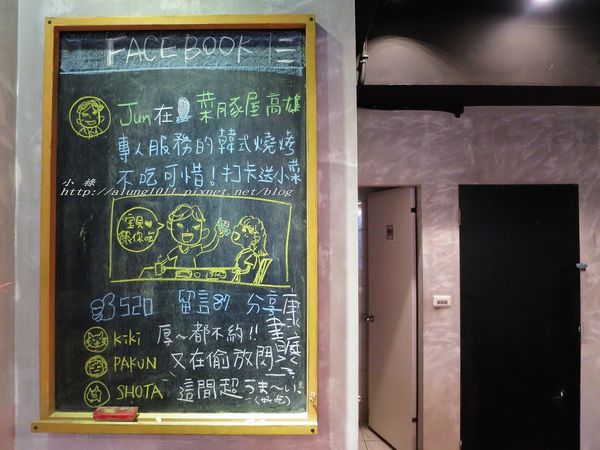 FACEBOOK
Jun在菜豚屋高雄
專人服務的韓式燒烤
不吃可惜！打卡送小菜
小祿
http://alung1011.pixnet.net/blog
寶貝
餵你吃
520 留言81 分享
kiki 厚~都不約!!
PAKUN 又在偷放閃
SHOTA 這間超うま~い!